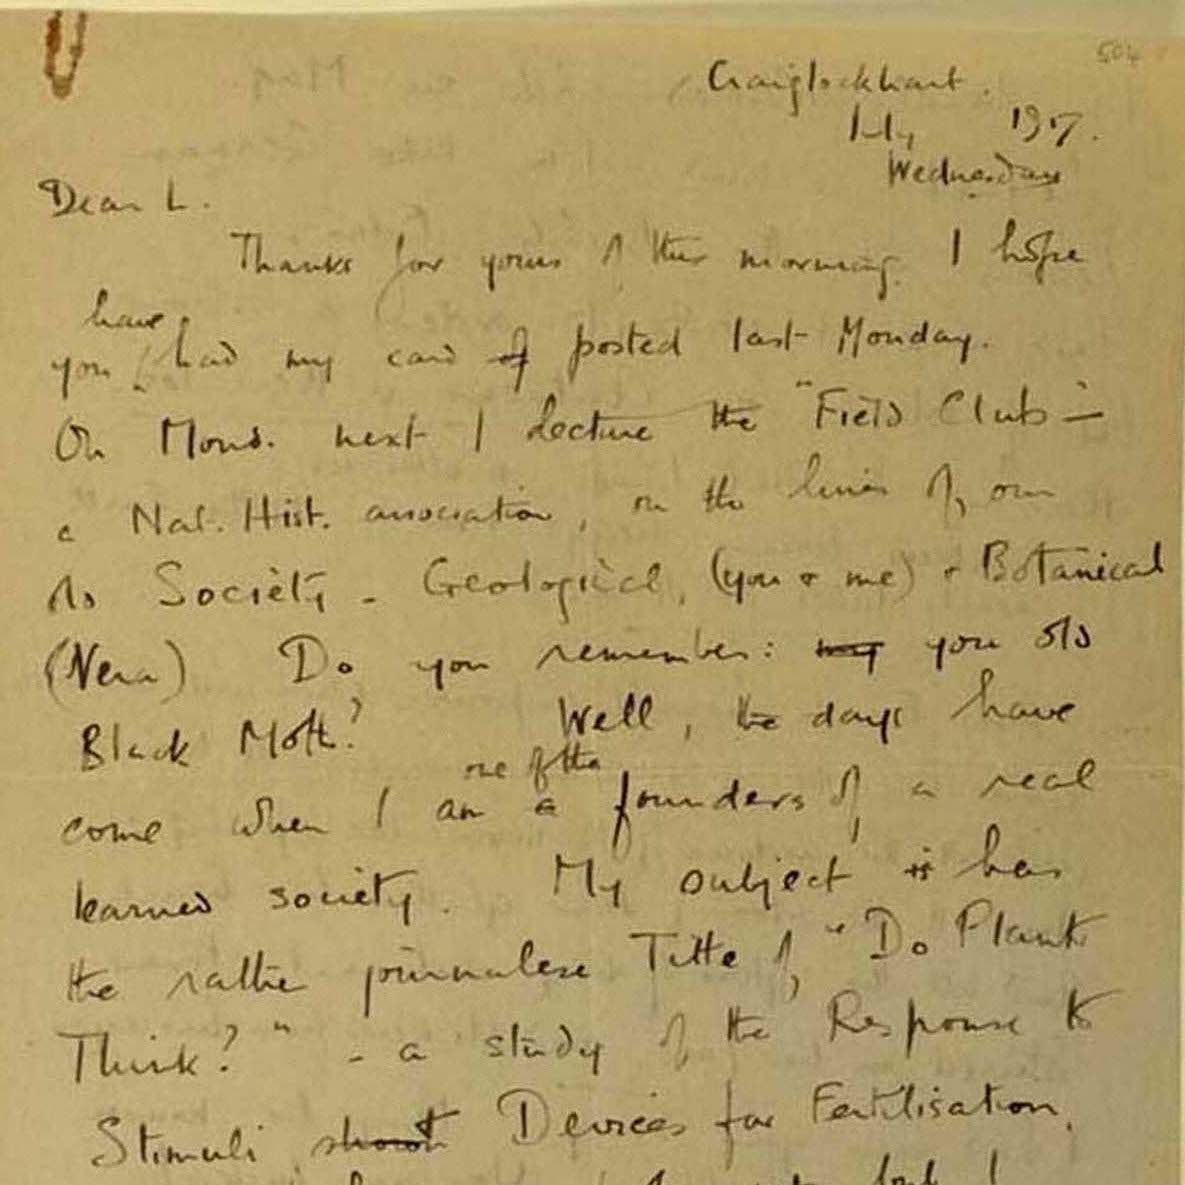 504
Craiglockhart.
July 1917.
Wednesday
Dear L.
Thanks for yours of this morning. I hope
have
you had my card of posted last Monday.
On Mond. next I lecture the "Field Club" —
a Nat. Hist. association, on the lines of our
old Society - Geological, (you & me) & Botanical
(Vera) Do you remember: my you old
Black Moth? Well, the days have
one of the
come when I am a founders of a real
learned society. My subject is has
the rather journalese Title of "Do Plants
Think?" - a study of the Response to
Stimuli short Devices for Fertilisation,